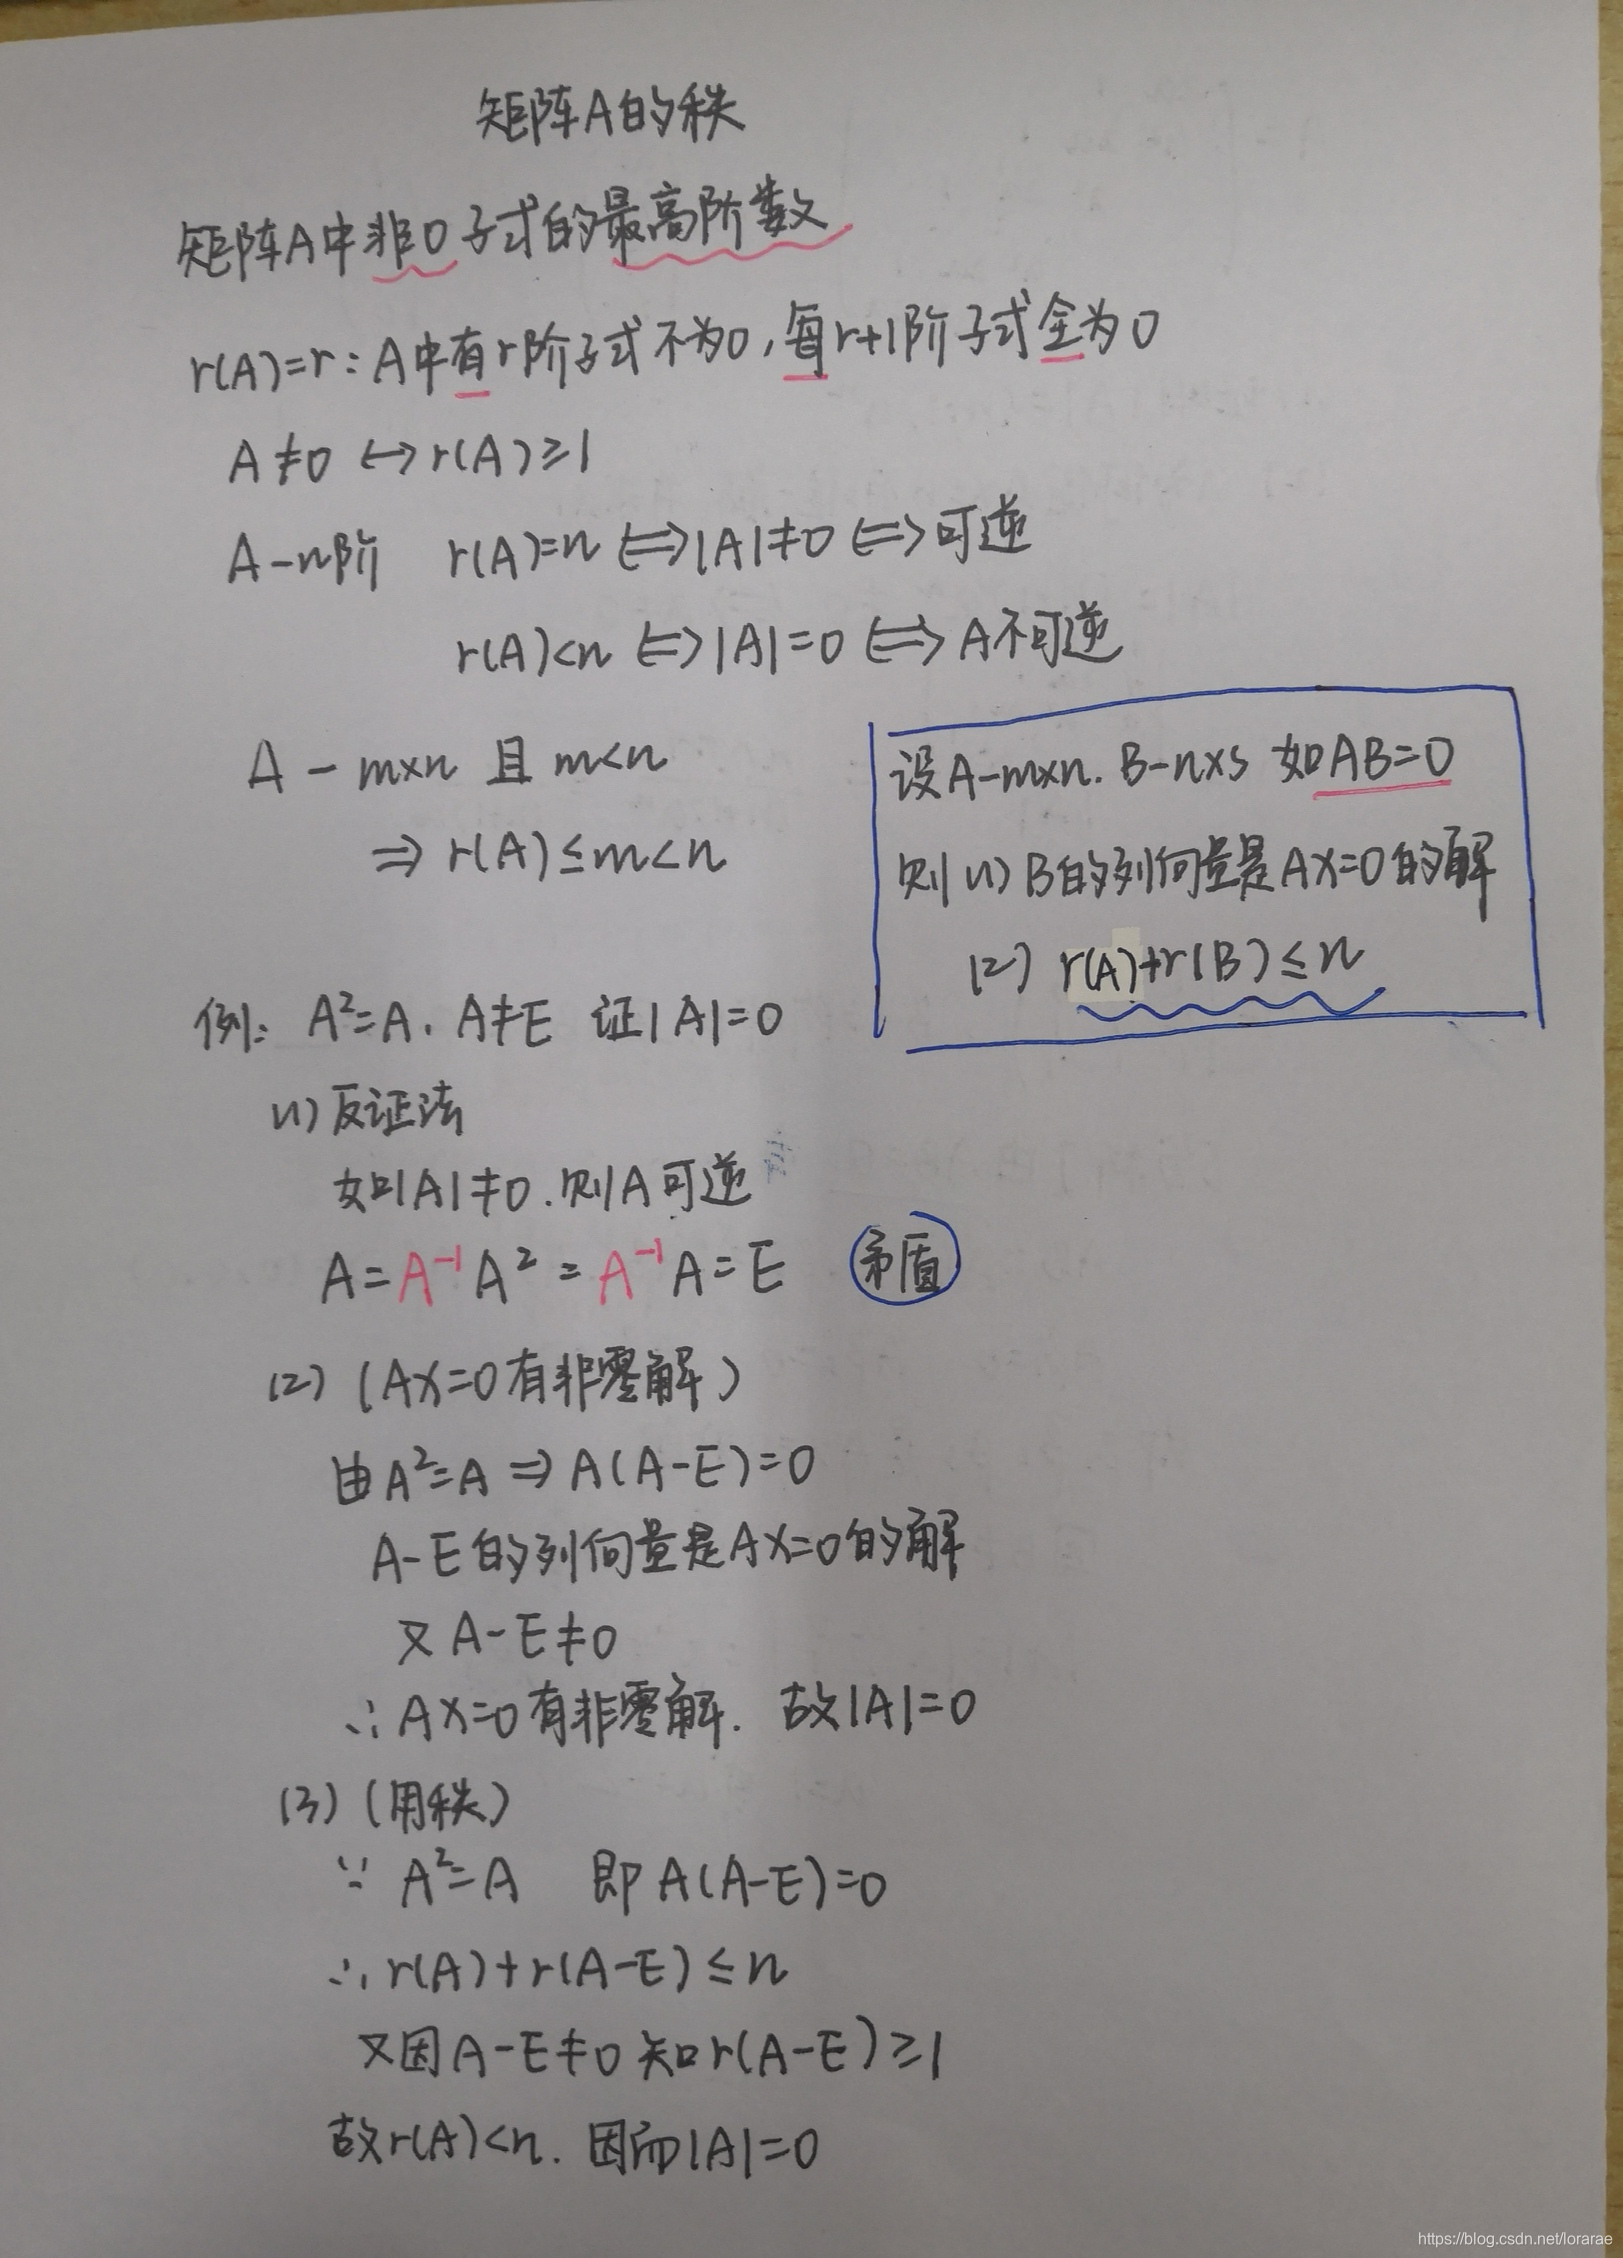 矩阵A的秩
矩阵A中非0子式的最高阶数
r(A)=r：A中有r阶子式不为0，每r+1阶子式全为0
A≠0 ↔ r(A)≥1
A-n阶 r(A)=n ⇔ |A|≠0 ⇔ 可逆
r(A)<n ⇔ |A|=0 ⇔ A不可逆
A-m×n 且 m<n
⇒ r(A)≤m<n
设A-m×n. B-n×s 如AB=0
则 (1) B的列向量是AX=0的解
(2) r(A)+r(B)≤n
例: A²=A, A≠E 证|A|=0
(1) 反证法
如|A|≠0.则A可逆
A=A⁻¹A²=A⁻¹A=E 矛盾
(2) (AX=0有非零解)
由A²=A ⇒ A(A-E)=0
A-E的列向量是AX=0的解
又A-E≠0
∴AX=0有非零解. 故|A|=0
(3) (用秩)
∵ A²=A 即A(A-E)=0
∴r(A)+r(A-E)≤n
又因A-E≠0知r(A-E)≥1
故r(A)<n. 因而|A|=0
https://blog.csdn.net/lorarae